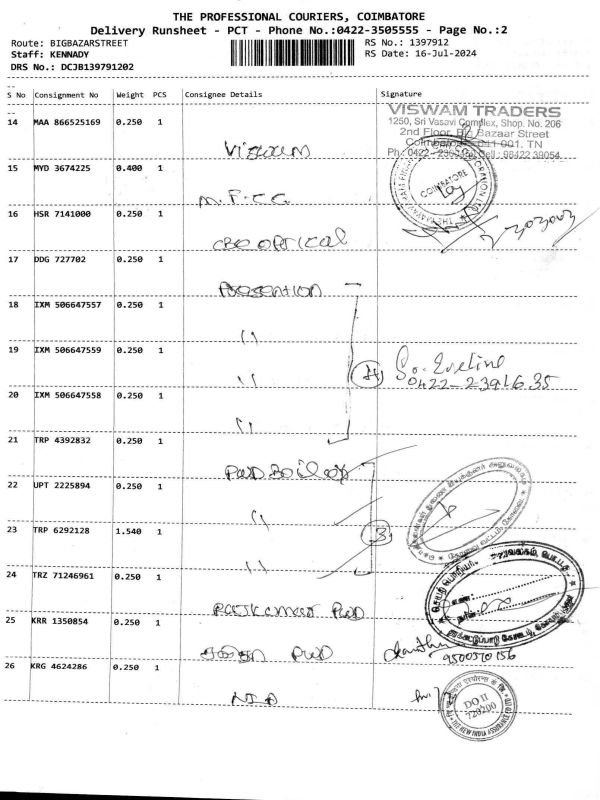 THE PROFESSIONAL COURIERS, COIMBATORE
Delivery Runsheet - PCT - Phone No.:0422-3505555 - Page No.:2
Route: BIGBAZARSTREET RS No.: 1397912
Staff: KENNADY RS Date: 16-Jul-2024
DRS No.: DCJB139791202
S No Consignment No Weight PCS Consignee Details Signature
VISWAM TRADERS
1250, Sri Vasavi Complex, Shop. No. 206
2nd Floor, Big Bazaar Street
Coimbatore - 641 001. TN
14 MAA 866525169 0.250 1
15 MYD 3674225 0.400 1
COIMBATORE
16 HSR 7141000 0.250 1
CBE OPTICAL
17 DDG 727702 0.250 1
Presention
18 IXM 506647557 0.250 1
"
19 IXM 506647559 0.250 1
" 4 So. Eveline
0422-2391635
20 IXM 506647558 0.250 1
"
21 TRP 4392832 0.250 1
22 UPT 2225894 0.250 1
"
23 TRP 6292128 1.540 1
" 3
24 TRZ 71246961 0.250 1
PWD
25 KRR 1350854 0.250 1
PWD
9500570156
26 KRG 4624286 0.250 1
NIA
DO II
720200